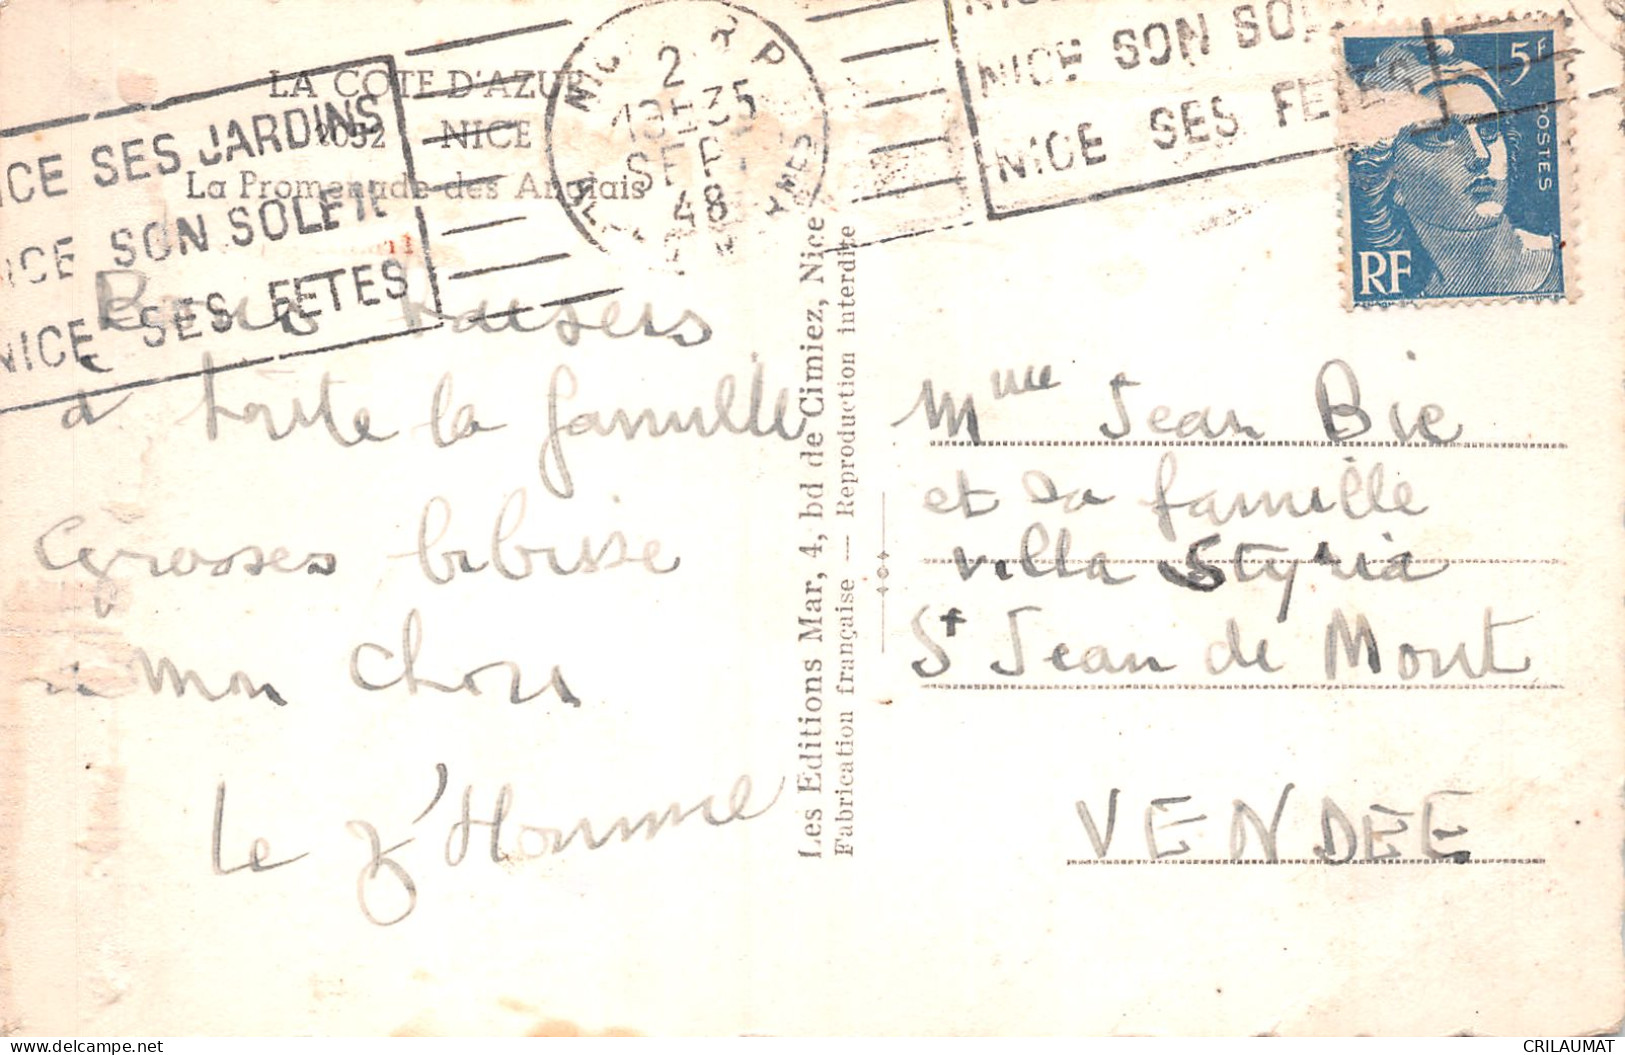 LA COTE D'AZUR
1052 NICE
La Promenade des Anglais
NICE SES JARDINS
NICE SON SOLEIL
NICE SES FETES
2
13E35
SEPT
48
NICE SON SOLEIL
NICE SES FETES
5F
POSTES
RF
Bons baisers
à toute la famille
Grosses bibisse
à mon chou
le
Les Editions Mar, 4, bd de Cimiez, Nice
Fabrication française — Reproduction interdite
Mme Jean Bic
et sa famille
villa Styria
St Jean de Mont
VENDÉE
CRILAUMAT